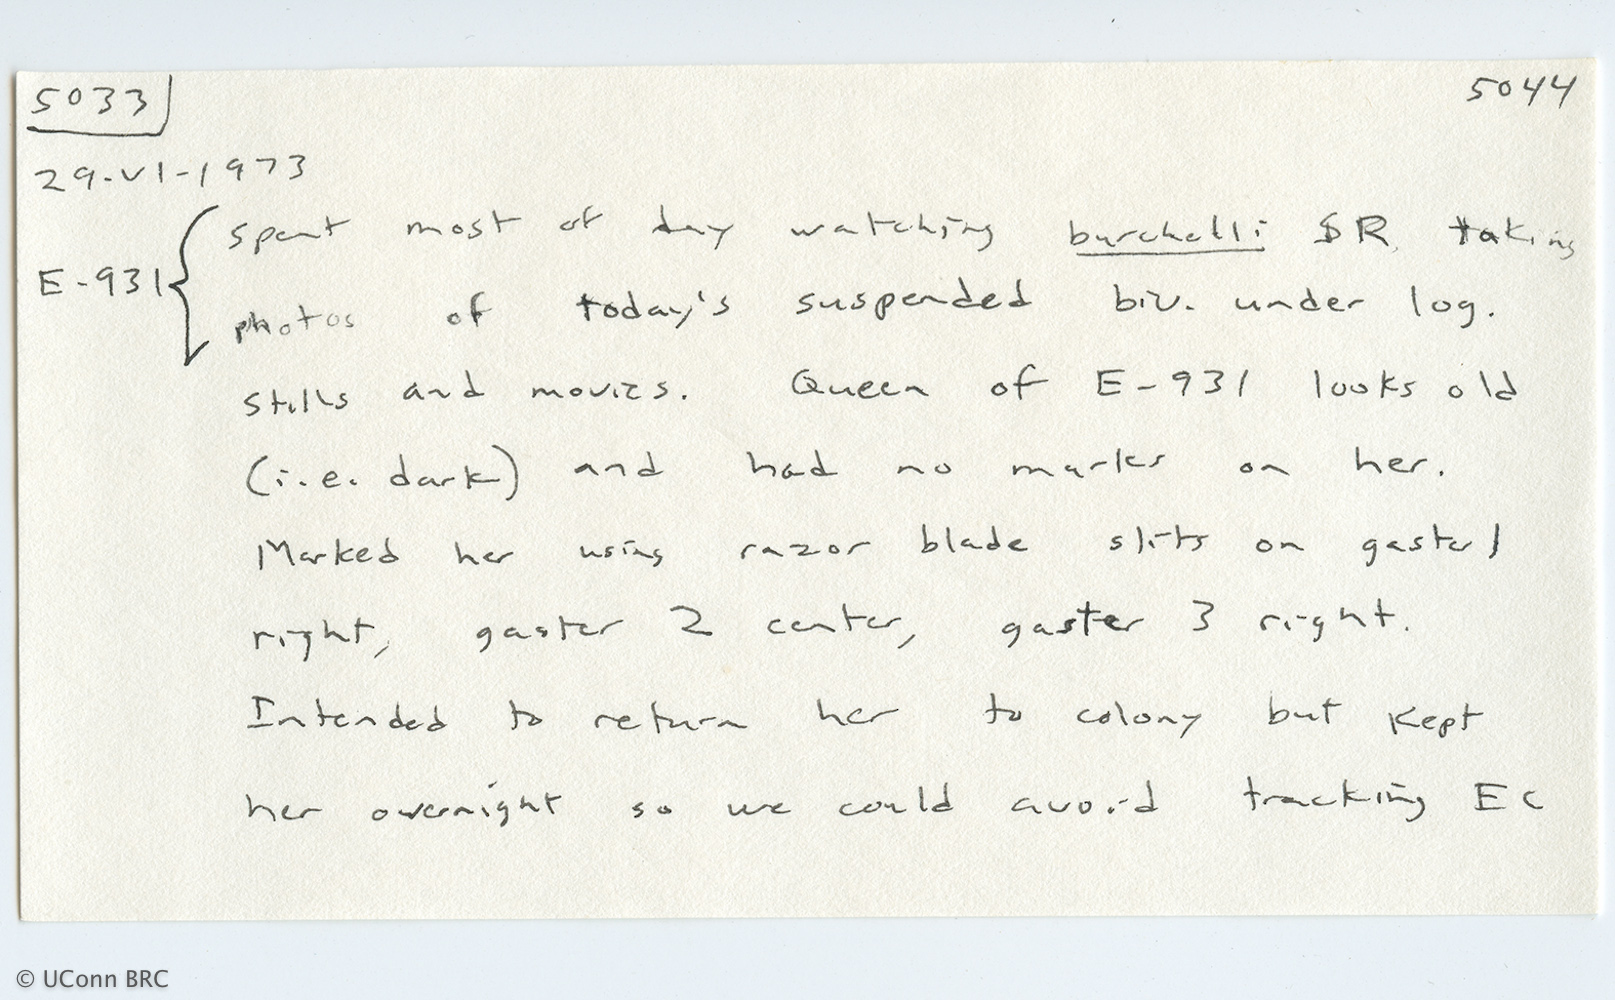 5033
5044
29-VI-1973
E-931
spent most of day watching burchelli $R, taking
photos of today's suspended biv. under log.
Stills and movies. Queen of E-931 looks old
(i.e. dark) and had no marks on her.
Marked her using razor blade slits on gaster 1
right, gaster 2 center, gaster 3 right.
Intended to return her to colony but kept
her overnight so we could avoid tracking Ec
© UConn BRC